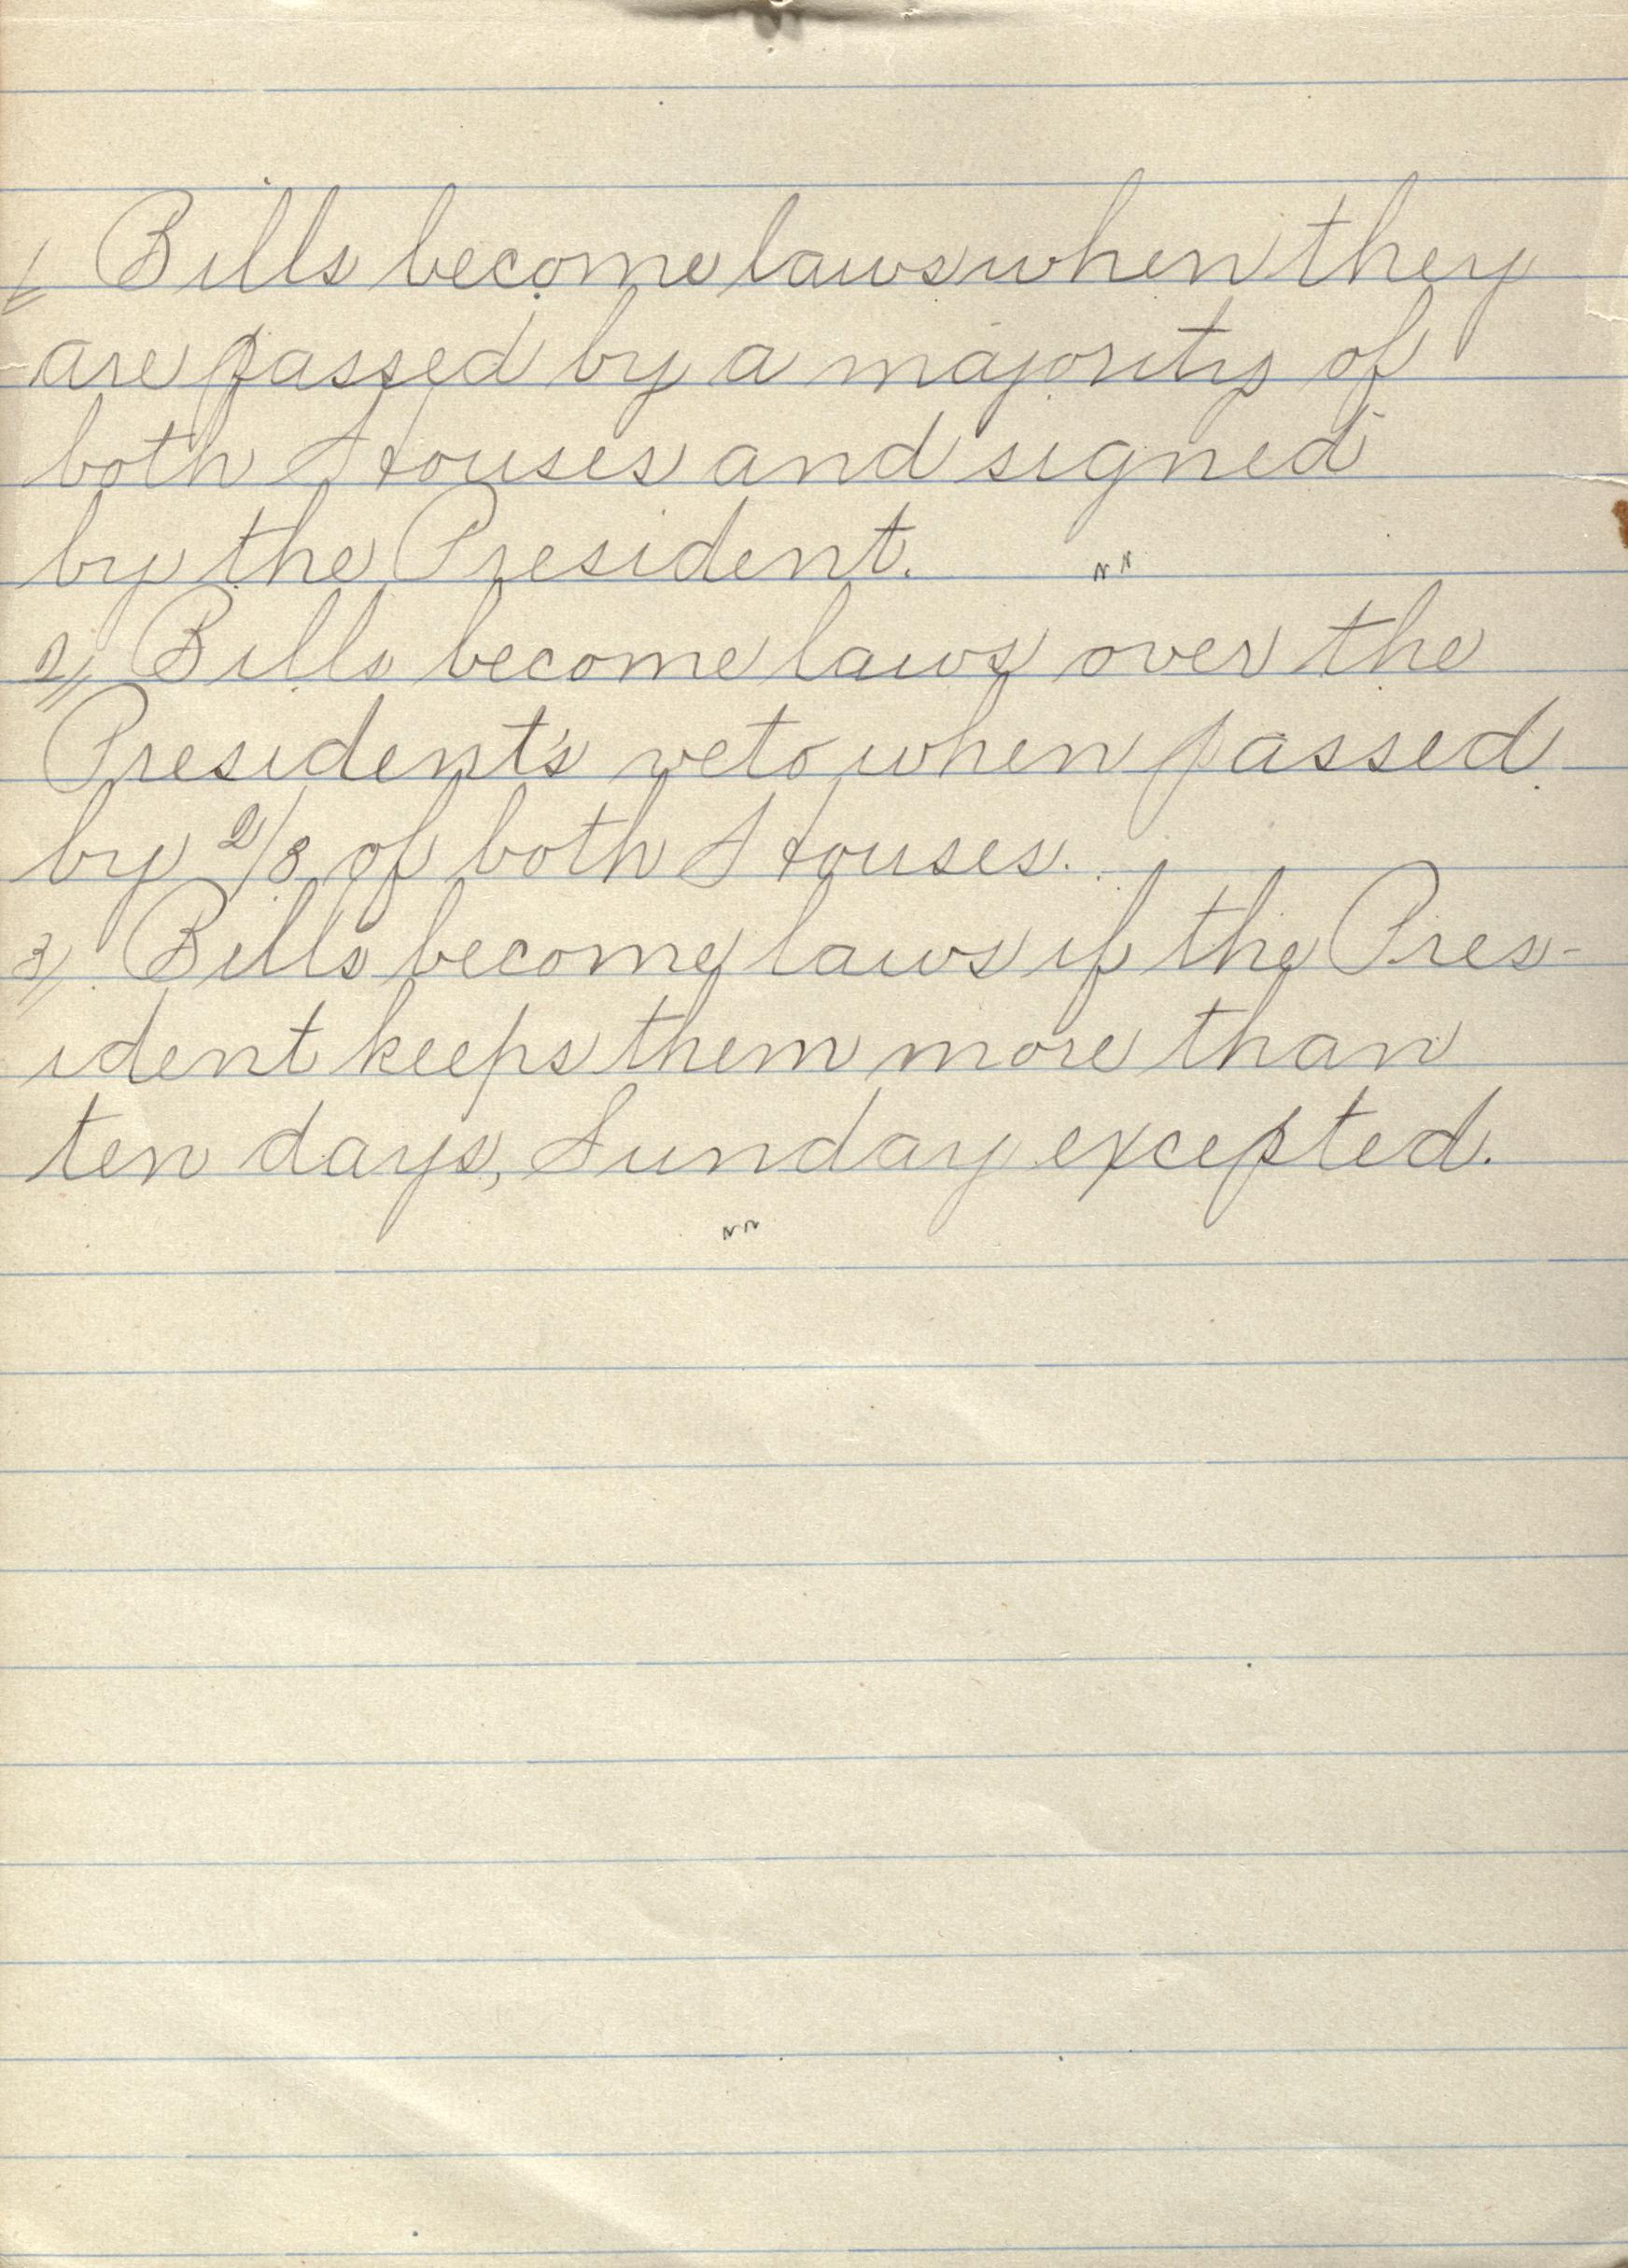 1, Bills become laws when they
are passed by a majority of
both Houses and signed
by the President.
2, Bills become laws over the
President's veto when passed
by 2/3 of both Houses.
3, Bills become laws if the Pres-
ident keeps them more than
ten days, Sunday excepted.